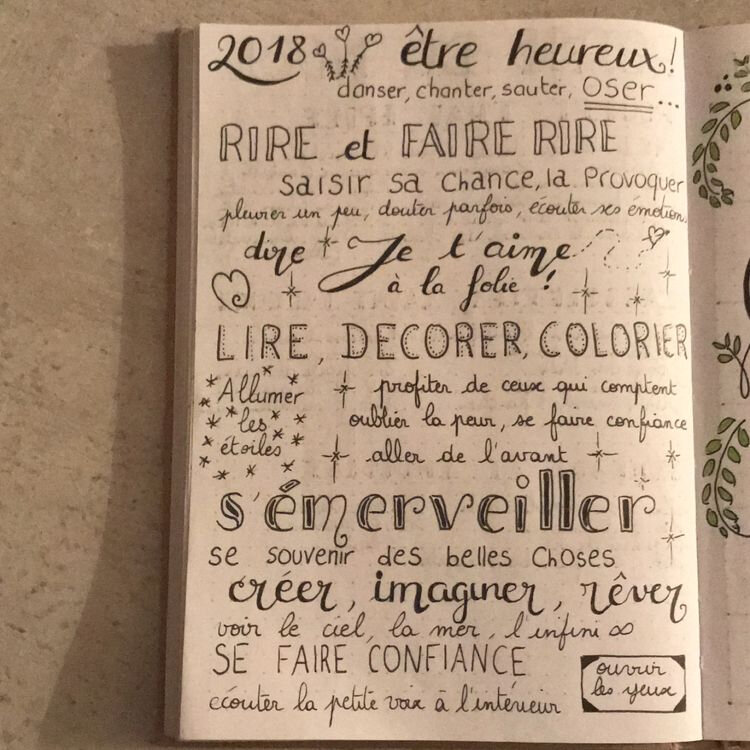 2018 être heureux!
danser, chanter, sauter, OSER...
RIRE et FAIRE RIRE
saisir sa chance, la provoquer
pleurer un peu, douter parfois, écouter ses émotions
dire Je t'aime
à la folie !
LIRE, DECORER, COLORIER
Allumer
les
étoiles
profiter de ceux qui comptent
oublier la peur, se faire confiance
aller de l'avant
s'émerveiller
se souvenir des belles choses
créer, imaginer, rêver
voir le ciel, la mer, l'infini ∞
SE FAIRE CONFIANCE
écouter la petite voix à l'intérieur
ouvrir
les yeux